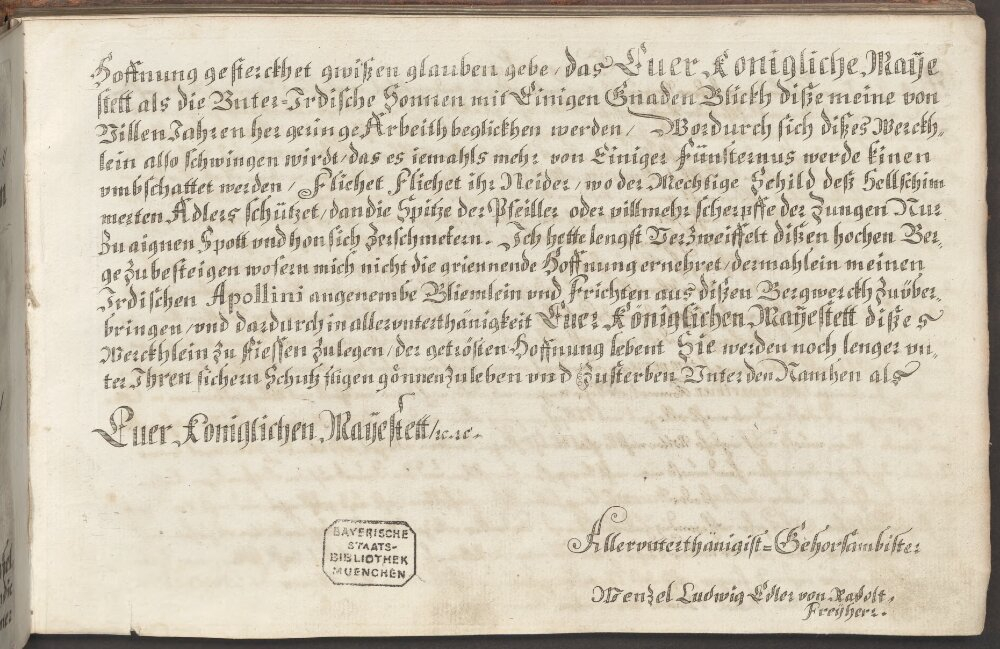 Hoffnung gesterckhet gwißen glauben gebe, das Euer Königliche Maye
stett als die Vnter-Irdische Sonnen mit Einigen Gnaden Blickh diße meine von
Villen Jahren her geringe Arbeith beglickhen werden / Wordurch sich dißes Werckh-
lein also schwingen wirdt, das es iemahls mehr von Einiger Fünsternus werde kinen
vmbschattet werden / Fliehet Fliehet ihr Neider, wo der Mechtige Schild deß Hellschim
merten Adlers schützet, dan die Spitze der Pfeiller oder villmehr scherpffe der Zungen Nur
Zu aignen Spott vnd hon sich Zerschmetern. Ich hette lengst Verzweiffelt dißen hochen Ber-
ge Zu besteigen wofern mich nicht die griennende Hoffnung ernehret, dermahlein meinen
Irdischen Apollini angenembe Bliemlein vnd Frichten aus dißen Bergwerckh Zu über-
bringen, vnd dardurch in allervnterthänigkeit Euer Königlichen Mayestett dißes
Werckhlein Zu Fiessen Zulegen, der getrösten Hoffnung lebent Sie werden noch lenger vn-
ter Ihren sichern Schutz fligen gönnen Zuleben vnd Zusterben Vnter den Namhen als
Euer Königlichen Mayestett, &c. &c.
BAYERISCHE
STAATS-
BIBLIOTHEK
MUENCHEN
Allervnterthänigist-Gehorsambister
Wenzel Ludwig Edler von Radolt,
Freyherr.